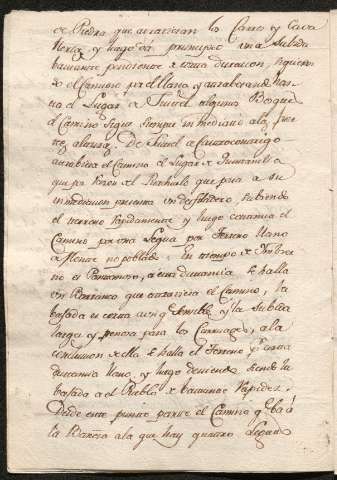 de Piedra que atraviesan los Carros y Cava
lleria, y luego da principio una Subida
bastante pendiente de corta duracion, siguien
do el Camino por el llano y atraberando has
ta el Lugar de algunos Bosques
el Camino sigue siempre inmediato al
De a
atrabiesa el Camino el Lugar de
que por Razon de Riachuelo que pasa a su
inmediacion presenta un desfiladero, subiendo
el terreno rapidamente y luego continua el
Camino por una Legua por Terreno llano
de Monte no poblado. En tiempo de Imbier
no es Pantanoso, a esta distancia se halla
un Barranco que atraviesa el Camino, la
bajada es corta aunq sensible, y la subida
larga y penosa para los Carruages, a la
conclusion de ella se halla el Terreno
distancia llano, y luego deciende siendo la
bajada al Pueblo de bastante rapidez.
Desde este punto parte el Camino q ba á
la Bañeza a la que hay quatro Leguas